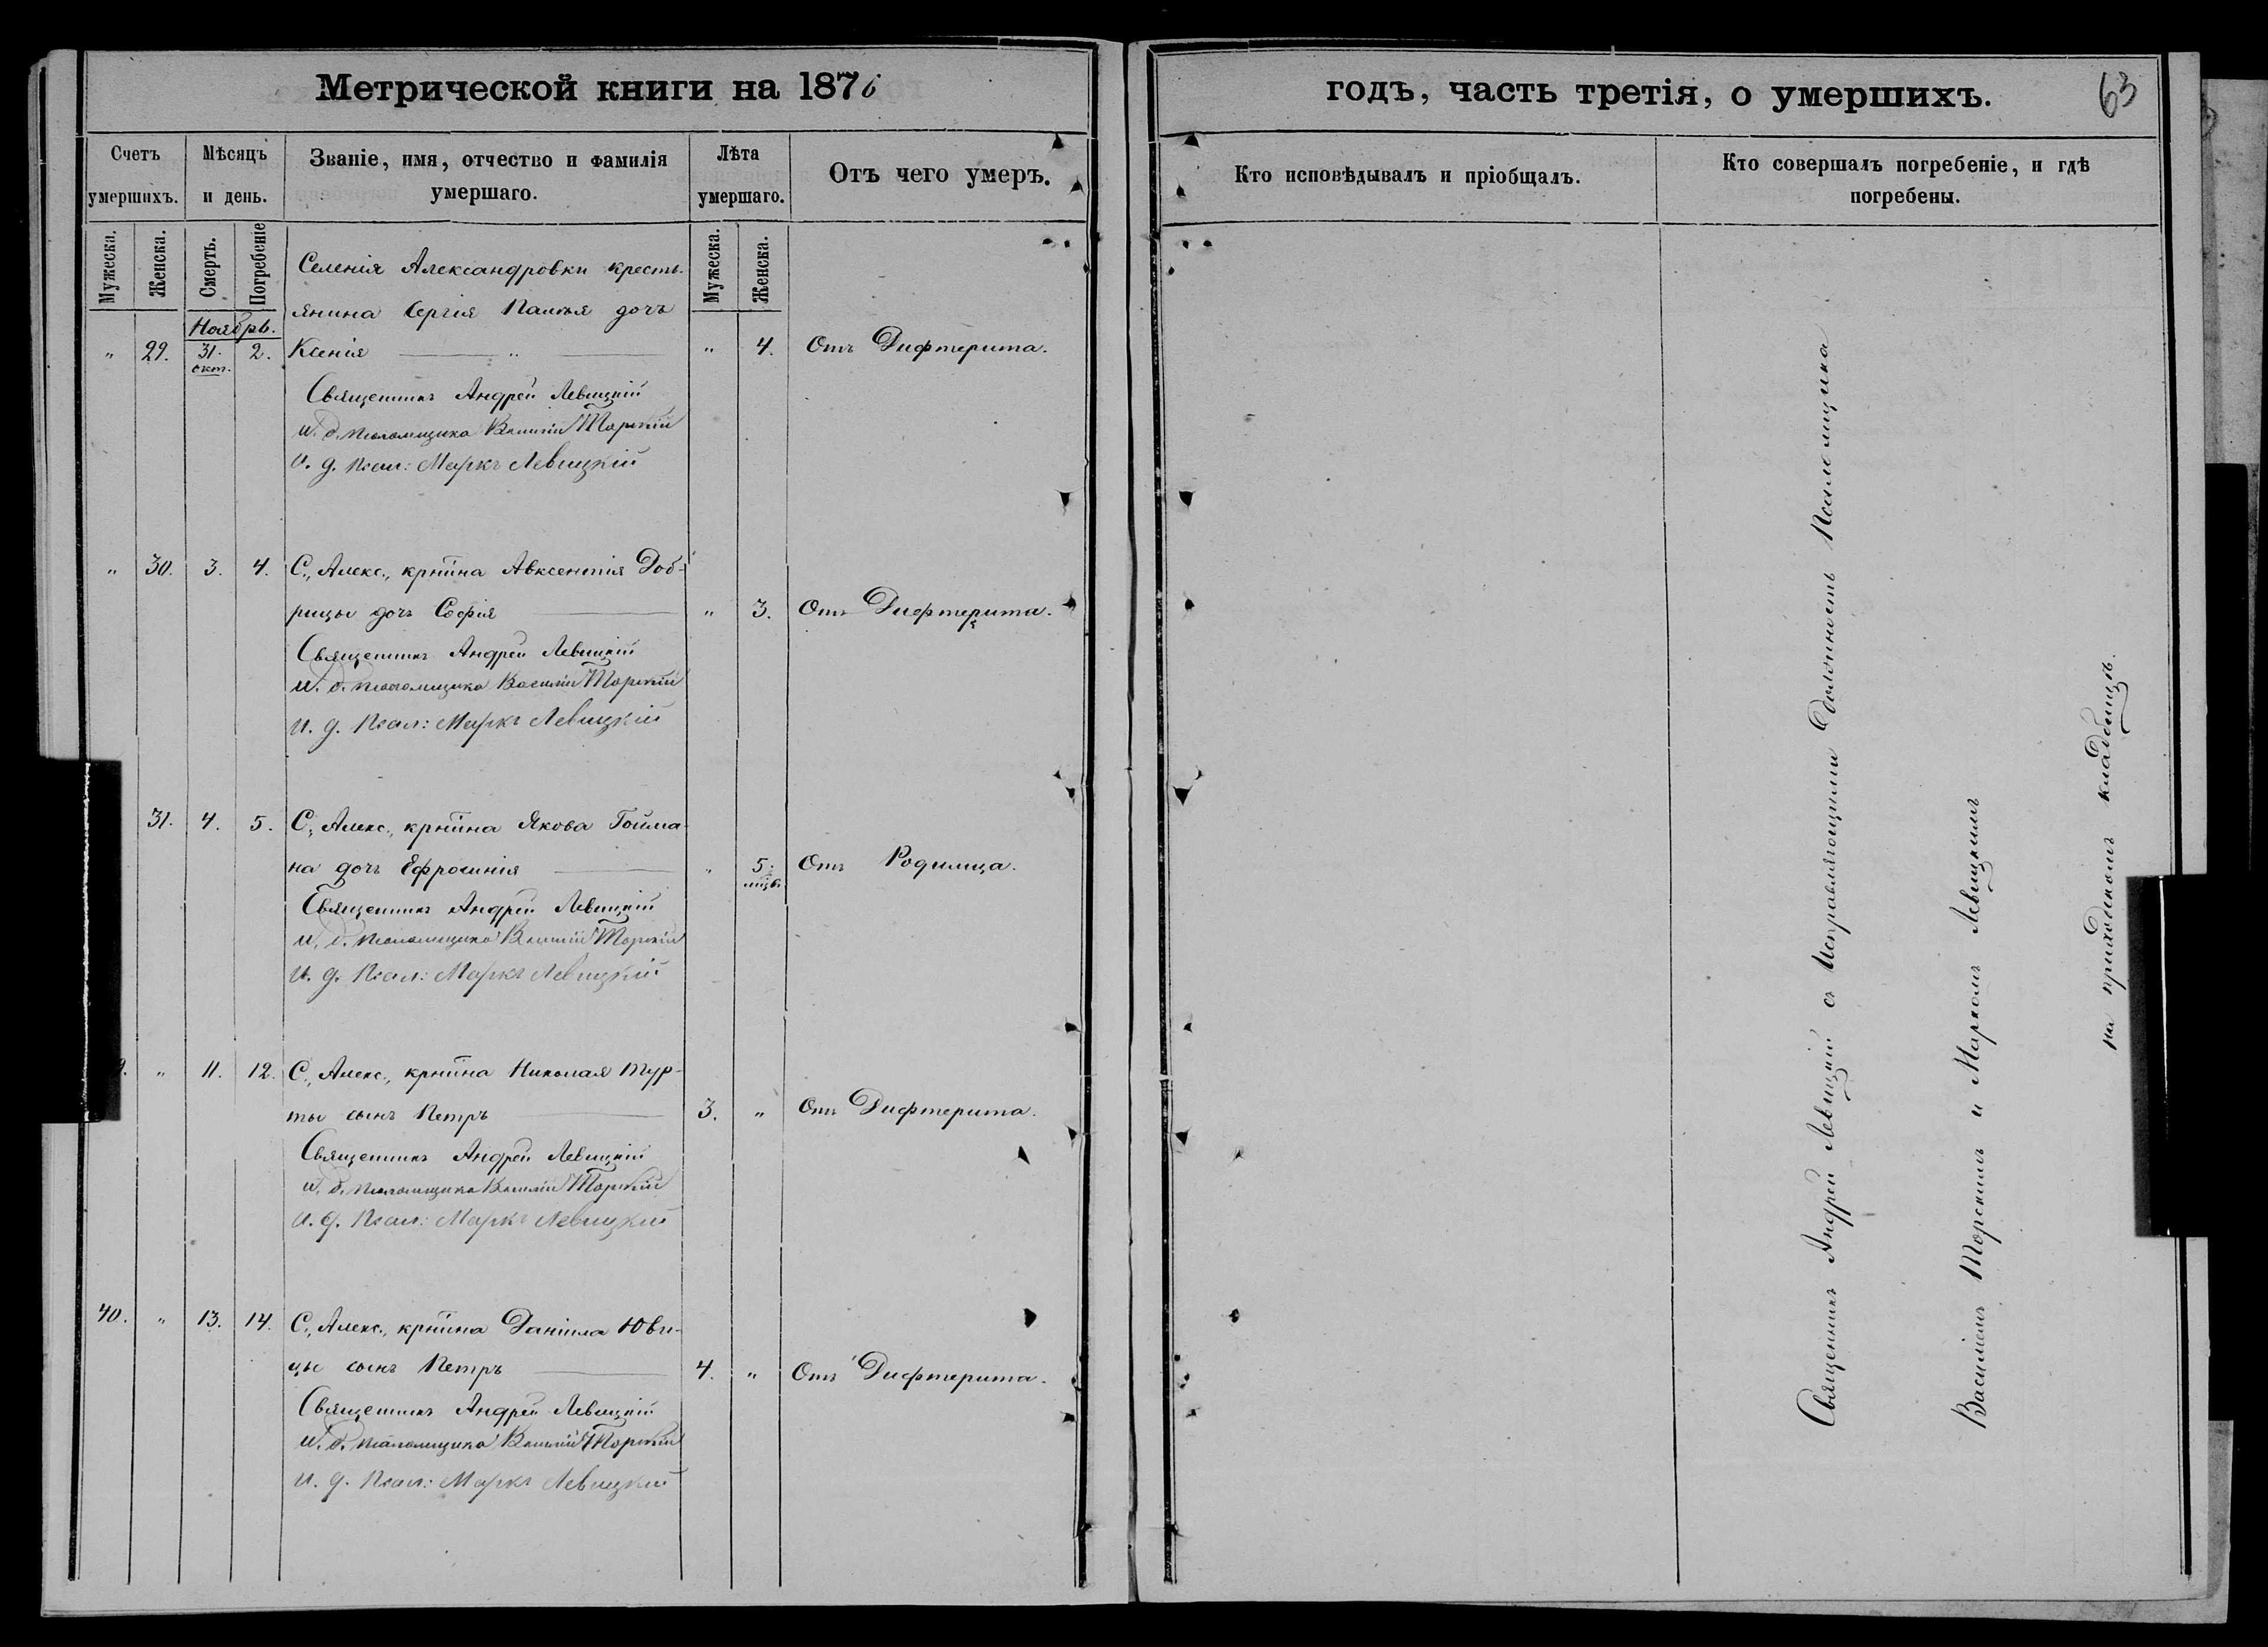 Метрической книги на 1876
годъ, часть третія, о умершихъ.
63
Счетъ умершихъ.
Мѣсяцъ и день.
Званіе, имя, отчество и фамилія умершаго.
Лѣта умершаго.
Отъ чего умеръ.
Кто исповѣдывалъ и пріобщалъ.
Кто совершалъ погребеніе, и гдѣ погребены.
Мужеска.
Женска.
Смерть.
Погребеніе
Мужеска.
Женска.
Селенія Александровки кресть-
янина Сергія дочь
Ноябрь.
„ 29. 31. окт. 2. Ксенія „ „ 4. Отъ Дифтерита.
Священникъ Андрей Левицкій
И. д. псаломщика Василій Торскій
И. д. Псал: Маркъ Левицкій
„ 30. 3. 4. С., Алекс., крнїина Авксентія Доб-
рицы дочь Софія „ 3. Отъ Дифтерита.
Священникъ Андрей Левицкій
И. д. псаломщика Василій Торскій
И. д. Псал: Маркъ Левицкій
31. 4. 5. С., Алекс., крнїина Якова Гойма-
на дочь Ефросинія „ 5. мцв. Отъ Родимца.
Священникъ Андрей Левицкій
И. д. псаломщика Василій Торскій
И. д. Псал: Маркъ Левицкій
„ 11. 12. С., Алекс., крнїина Николая Тур-
ты сынъ Петръ 3. „ Отъ Дифтерита.
Священникъ Андрей Левицкій
И. д. псаломщика Василій Торскій
И. д. Псал: Маркъ Левицкій
40. „ 13. 14. С., Алекс., крнїина Даніила Юви-
цы сынъ Петръ 4. „ Отъ Дифтерита.
Священникъ Андрей Левицкій
И. д. псаломщика Василій Торскій
И. д. Псал: Маркъ Левицкій
Священникъ Андрей Левицкій съ Исправляющими Должность Псаломщика
Василіемъ Торскимъ и Маркомъ Левицкимъ
на приходскомъ кладбищѣ.